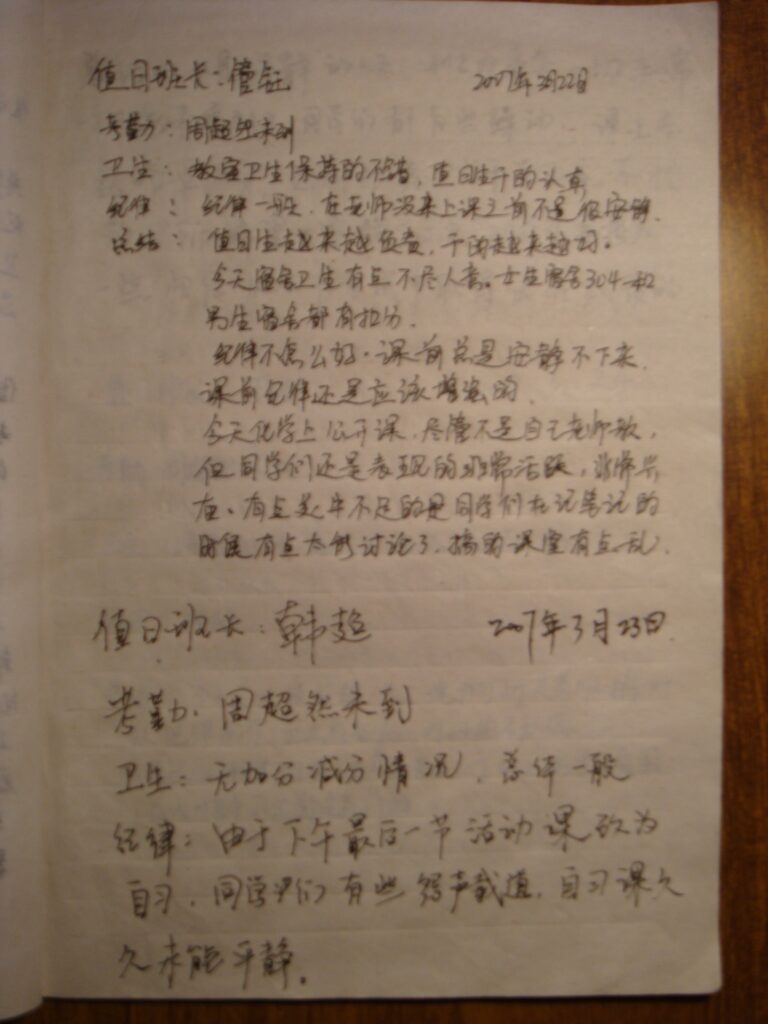 值日班长：僮钰 2007年3月22日
考勤：周超然未到
卫生：教室卫生保持的不错，值日生干的认真
纪律：纪律一般，在老师没来上课之前不是很安静。
总结：值日生越来越负责，干的越来越好。
今天宿舍卫生有点不尽人意。女生宿舍304和
男生宿舍都有扣分.
纪律不怎么好。课前总是安静不下来.
课前纪律还是应该增强的.
今天化学上公开课，尽管不是自己老师教，
但同学们还是表现的非常活跃，非常实
在。有点美中不足的是同学们在记笔记的
时候有点太讨论了，搞的课堂有点乱.
值日班长：韩超 2007年3月23日.
考勤：周超然未到
卫生：无加分减分情况，总体一般
纪律：由于下午最后一节活动课改为
自习，同学们有些怨声载道，自习课久
久未能平静.